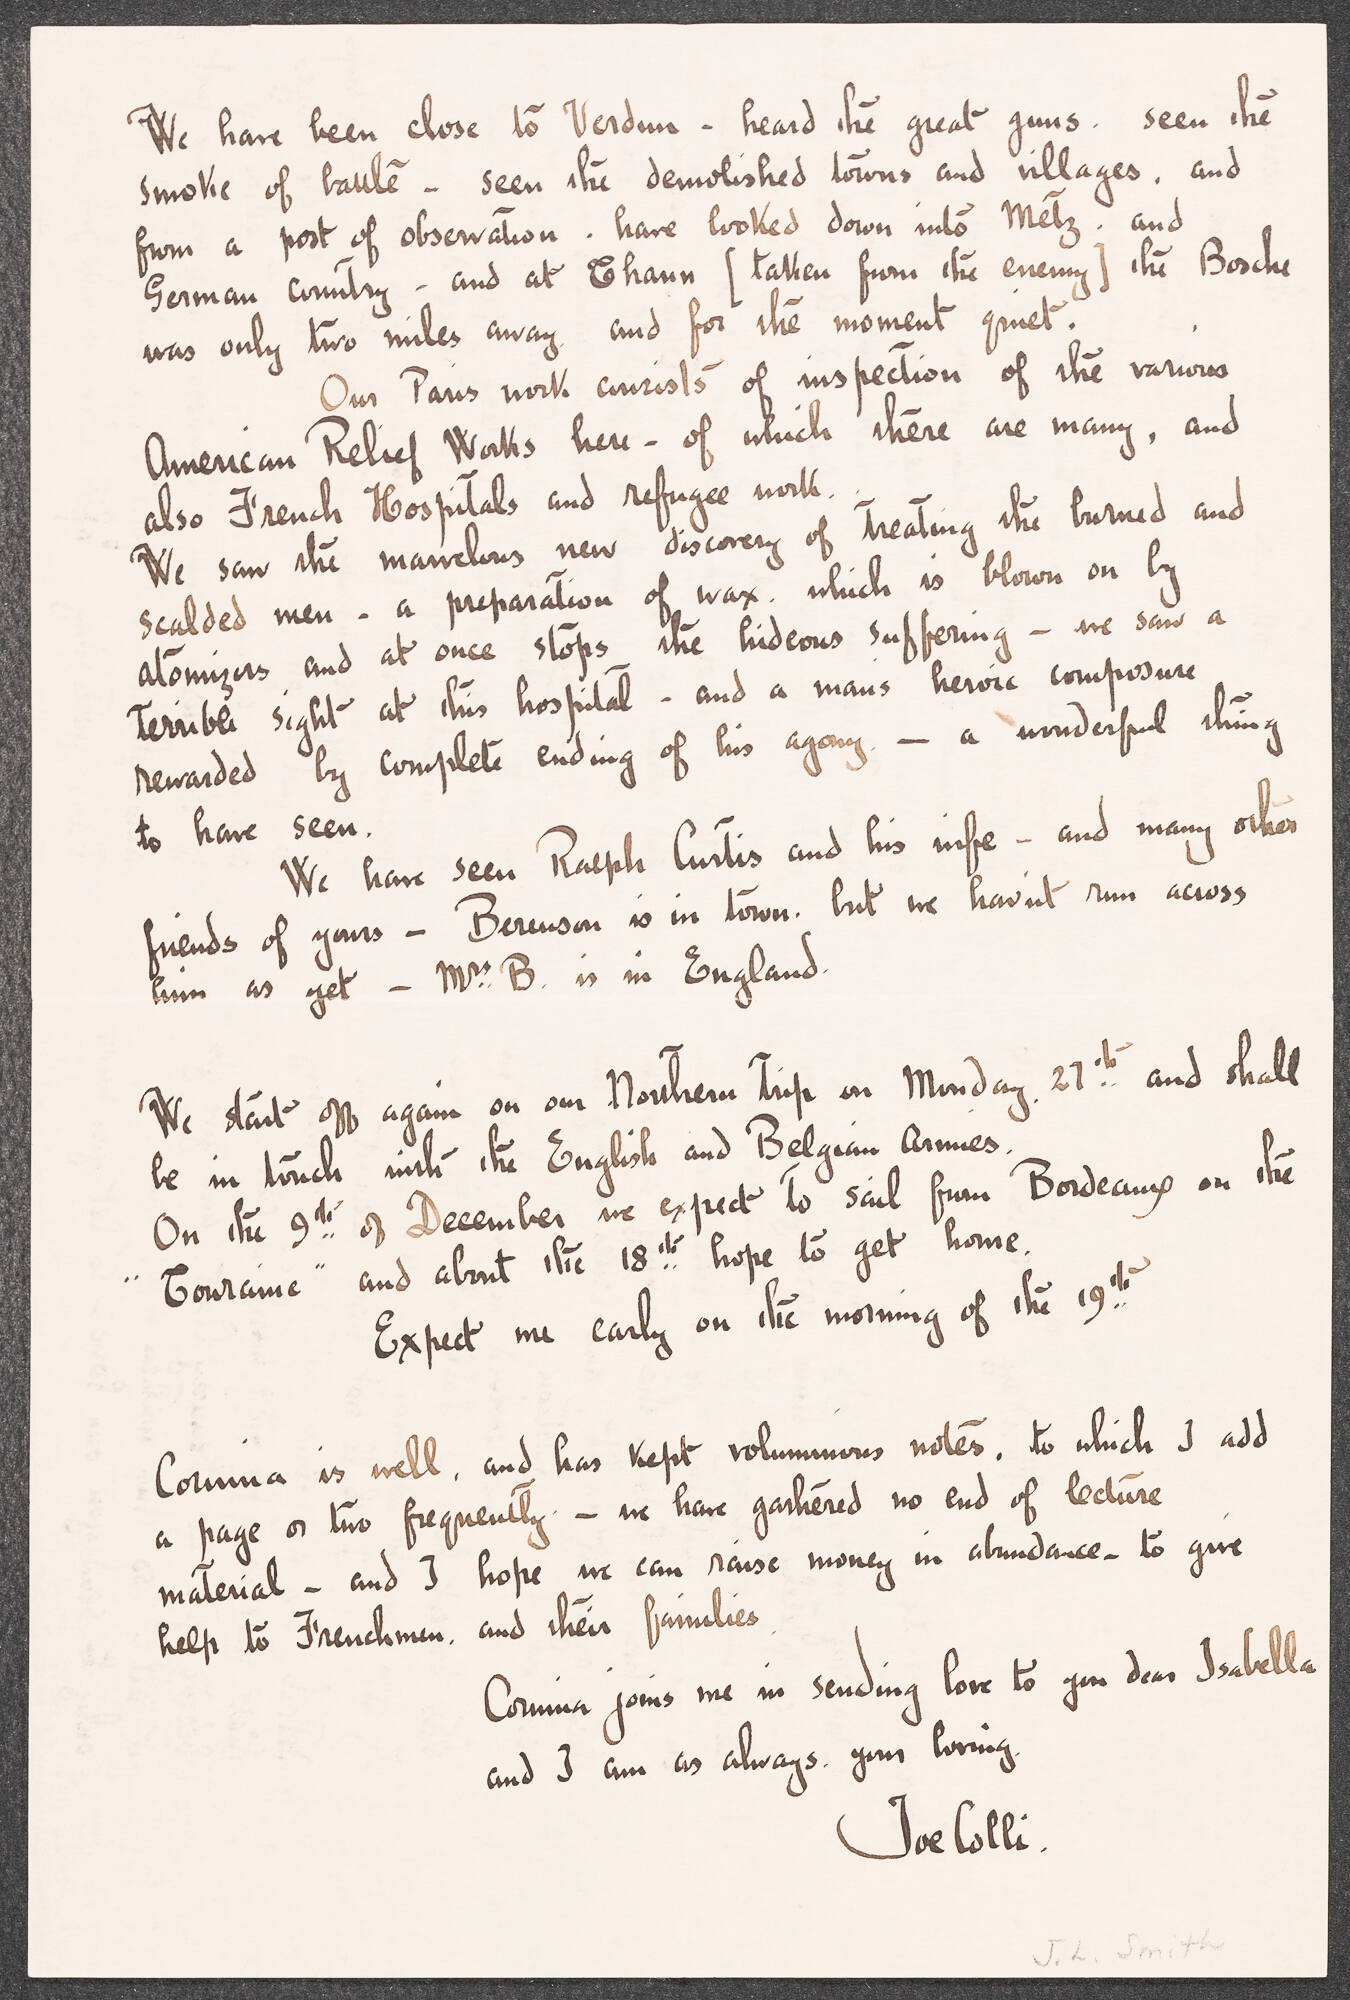 We have been close to Verdun - heard the great guns. seen the
smoke of battle - seen the demolished towns and villages, and
from a post of observation. have looked down into Metz. and
German country - and at Thann [taken from the enemy] the Bosche
was only two miles away. and for the moment quiet.
Our Paris work consists of inspection of the various
American Relief Works here - of which there are many, and
also French Hospitals and refugee work.
We saw the marvelous new discovery of treating the burned and
scalded men - a preparation of wax. which is blown on by
atomizers and at once stops the hideous suffering - we saw a
terrible sight at this hospital - and a man's heroic composure
rewarded by complete ending of his agony. - a wonderful thing
to have seen.
We have seen Ralph Curtis and his wife - and many other
friends of yours - Berenson is in town. but we havn't run across
him as yet - Mrs. B. is in England.
We start off again on our Northern trip on Monday. 27th and shall
be in touch with the English and Belgian Armies.
On the 9th of December we expect to sail from Bordeaux on the
"Touraine" and about the 18th hope to get home.
Expect me early on the morning of the 19th
Corinna is well, and has kept voluminous notes, to which I add
a page or two frequently. - we have gathered no end of lecture
material - and I hope we can raise money in abundance - to give
help to Frenchmen. and their families.
Corinna joins me in sending love to you dear Isabella
and I am as always. your loving.
Joe Colli.
J. L. Smith